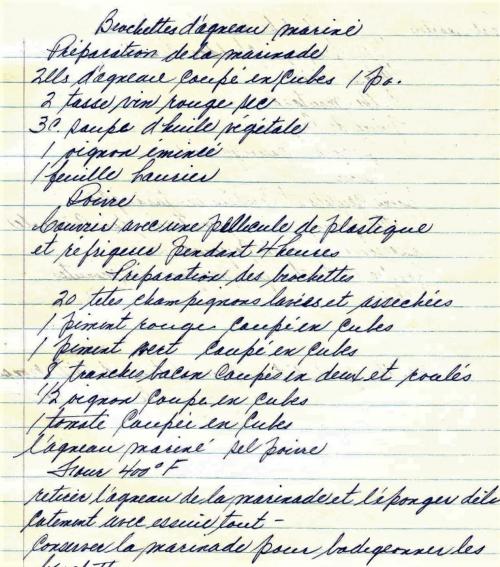 Brochettes d'agneau mariné
Préparation de la marinade
2 lbs d'agneau coupé en cubes 1 po.
2 tasse vin rouge sec
3 c. soupe d'huile végétale
1 oignon émincé
1 feuille laurier
Poivre
Couvrir avec une pellicule de plastique
et réfrigeur pendant 4 heures
Préparation des brochettes
20 têtes champignons lavées et assechées
1 piment rouge coupé en cubes
1 piment vert coupé en cubes
8 tranches bacon coupés en deux et roulés
1/2 oignon coupé en cubes
1 tomate coupée en cubes
l'agneau mariné sel poivre
Four 400° F
retirer l'agneau de la marinade et l'éponger déli
catement avec essuie tout -
Conserver la marinade pour badigeonner les